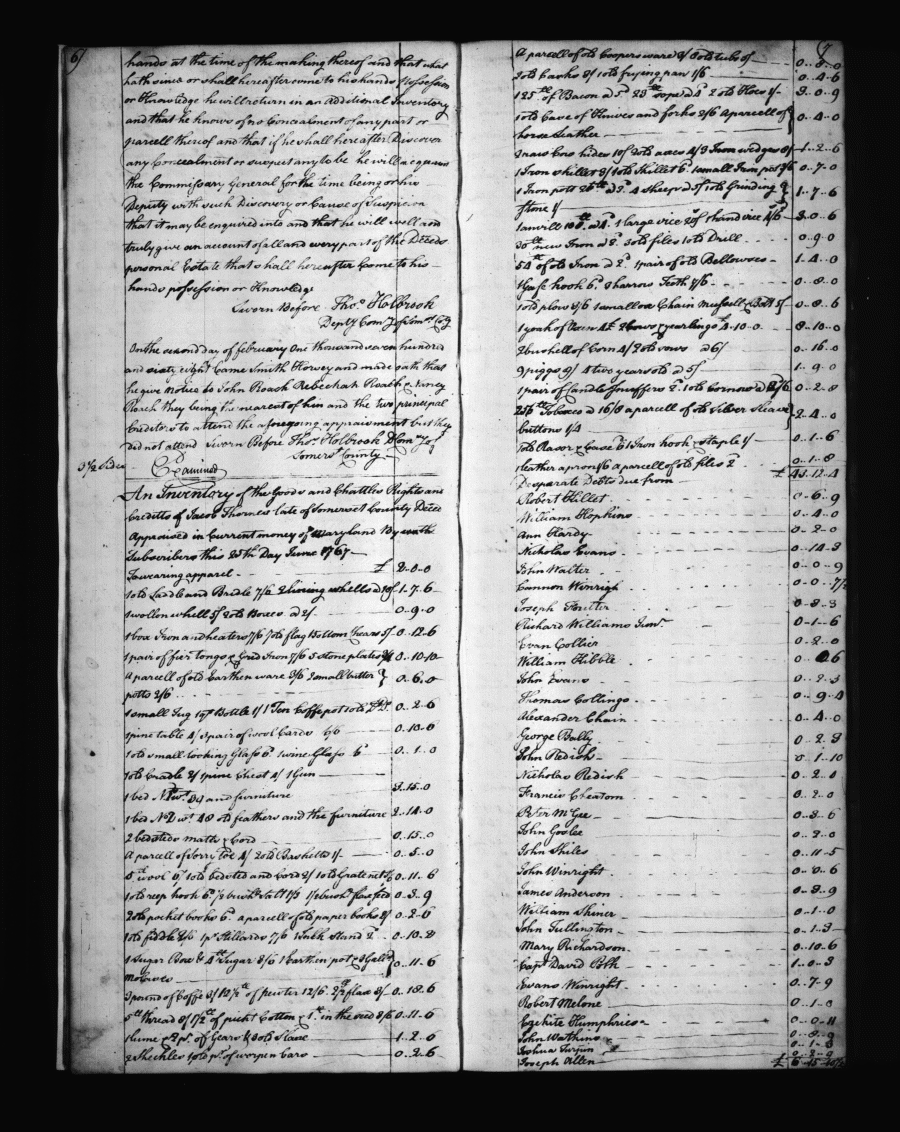 6)
hands at the time of the making thereof and that what
hath since or shall hereafter come to his hands possession
or Knowledge he will return in an Additional Inventory
and that he knows of no Concealment of any part or
parcell thereof and that if he shall hereafter Discover
any Concealment or suspect any to be he will acquaint
the Commissary General for the time being or his
Deputy with such Discovery or Cause of Suspicion
that it may be enquired into and that he will well and
truly give an account of all and every part of the Deceds
personal Estate that shall hereafter Come to his
hands possession or Knowledge
Sworn Before Thos. Holbrook
Depty Com.y of Som.t Co.ty
On the second day of february One thousand seven hundred
and sixty eight Came Smith Horsey and made oath that
he give Notice to John Roach Rebechah Roach & Nancy
Roach they being the nearest of kin and the two principal
Creditors to attend the aforegoing appraisment but they
did not attend Sworn Before Thos. Holbrook D Com.y of
Somerst County
3 1/2 sides
Examined
An Inventory of the Goods and Chattles Rights and
Creditts of Jacob Thornes late of Somerset County Deced
Appraised in Current money of Maryland By us the
Subscribers this 25th Day June 1767
To wearing apparel £ 2..0..0
1 old Saddle and Bridle 7/6 2 lining wheells a 10/ 1..7..6
1 wollon wheell 5/ 2 old Boxes a 2/ 0..9..0
1 box Iron and heaters 7/6 7 old flag Bottom Chears 5/ 0..12..6
1 pair of fier tongs & Grid Iron 7/6 5 stone plates 0..10..10
A parcell of old Earthen ware 3/6 2 small butter } 0..6..0
potts 2/6
1 small Jug 1 qt Bottle 1/ 1 Ten Coffe pot 1 old Do. 0..2..6
1 pine table 4/ 3 pair of wool Cards 6/6 0..10..6
1 old small Looking Glass 6d 1 wine Glass 6d 0..1..0
1 old Cradle 2/ 1 pine Chest 4/ 1 Gun
1 bed No. 1 wt. 39 and furniture 3..15..0
1 bed No. 2 wt. 48 old feathers and the furniture 2..14..0
2 bedsteds matts & Cord 0..15..0
A parcell of sorry Toe 4/ 2 old Basketts 1/ 0..5..0
5 lb wool 6/ 1 old bedsted and Cord 2/ 0..11..6
1 old reep hook 6d 1/2 bushl. salt 1/3 1/2 bushl. flaxseed 0..3..9
2 old pocket books 6d a parcell of old paper books 2/ 0..2..6
1 old fiddle 2/6 1 pr Stillards 7/6 1 Inkk stand 0..10..8
1 Sugar Box & 4 lb Sugar 3/6 1 Earthen pot & 3 Gall. } 0..11..6
molasses
3 pound of Coffe 3/ 12 1/2 lb of pewter 12/6 2 1/2 flax 3/ 0..18..6
5 lb thread 8/ 1 1/2 lb of pickt Cotton & 1 lb in the seed 3/6 0..11..6
1 kune & 2 ps. of Gears & 3 old 1..2..6
2 Sheckles 1 old ps. of 0..2..6
7
A parcell of old Coopers ware 3/ 3 old tubs of 0..8..0
2 old Casks 3/ 1 old frying pan 1/6 0..4..6
125 lb of Bacon a 5d 23 lb sope a 4d 2 old Hoes 1/ 3..0..9
1 old Case of Knives and forks 2/6 A parcell of } 0..4..0
horse Leather
2 raw Cow hides 10/ 2 old axes 4/ 3 Iron wedges 8/ 1..2..6
1 Iron skillet 3/ 1 old Skillet 6d 1 small Iron pot 3/6 0..7..0
1 Iron pott 26 lb a 3d 4 sheep a 5/ 1 old Grinding } 1..7..6
stone 1/
1 anvill 108 lb a 4d 1 large vice 20/ 1 hand vice 4/6 3..0..6
30 lb new Iron a 2d 3 old files 1 old Drill 0..9..0
54 lb of old Iron a 2d 1 pair of old Bellowses 1..4..0
1 Gaff hook 6d 3 harrow Teeth 2/6 0..8..0
1 old plow 2/6 1 small ox Chain 5/ 0..8..6
1 yoak of Oxen 4£ 2 Cows & yearlings £4..10..0 8..10..0
2 bushell of Corn 4/ 2 old sows a 6/ 0..16..0
9 piggs 9/ 4 two years old a 5/ 1..9..0
1 pair of Candle Snuffers 2d 1 old Cornow a 2/6 0..2..8
256 lb Tobaco a 16/8 a parcell of old Silver Sleave } 2..4..0
buttons 1/4
1 old Rasor & Case 6d 1 Iron hook & staple 1/ 0..1..6
1 leather apron 1/6 A parcell of old files 2d 0..1..8
£ 43..12..4
Desperate Debts due from
Robert Hillet 0..6..9
William Hopkins 0..4..0
Ann Hardy 0..2..0
Nicholas Evans 0..14..3
John Walter 0..0..9
Cannon Winrigh 0..0..7 1/2
Joseph Ruitter 0..8..3
Richard Williams Sen.r 0..1..6
Evan Collier 0..2..0
William Kibble 0..2..6
John Evans 0..2..3
Thomas Collings 0..9..4
Alexander Chain 0..4..0
George Bally 0..2..3
John Redish 0..1..10
Nicholas Redish 0..2..0
Francis Cheatom 0..2..0
Peter McGee 0..8..6
John Goslee 0..2..0
John Shiles 0..11..5
John Winright 0..0..6
James Anderson 0..8..9
William Skiner 0..1..0
John Tullington 0..1..3
Mary Richardson 0..10..6
Capt. David Polk 1..0..3
Evans Winright 0..7..9
Robert Melone 0..1..0
Ezekile Humphries 0..0..11
John Watkins 0..8..9
Joshua Turpin 0..1..8
Joseph Allen 0..2..0
£ 6..15..10 1/2